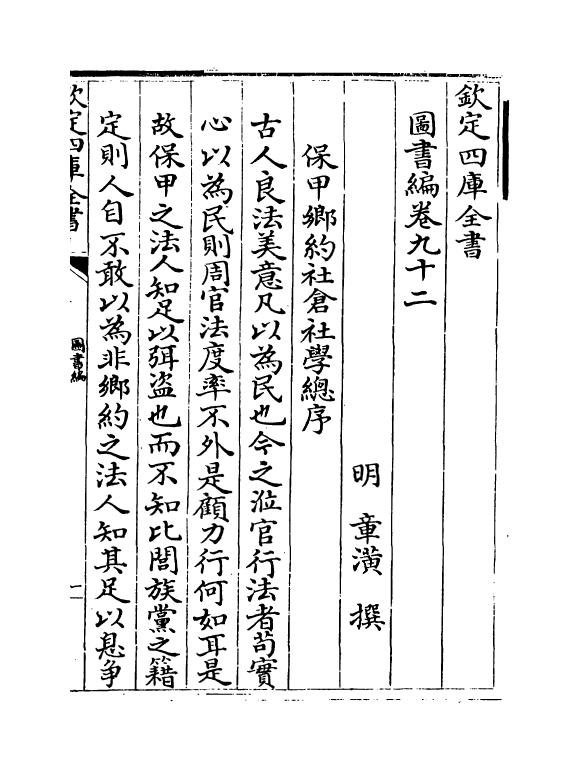 欽定四庫全書
圖書編卷九十二
明 章潢 撰
保甲鄉約社倉社學總序
古人良法美意凡以為民也今之涖官行法者茍實
心以為民則周官法度率不外是顧力行何如耳是
故保甲之法人知足以弭盜也而不知比閭族黨之籍
定則人自不敢以為非鄉約之法人知其足以息爭
欽定四庫全書
圖書編
一